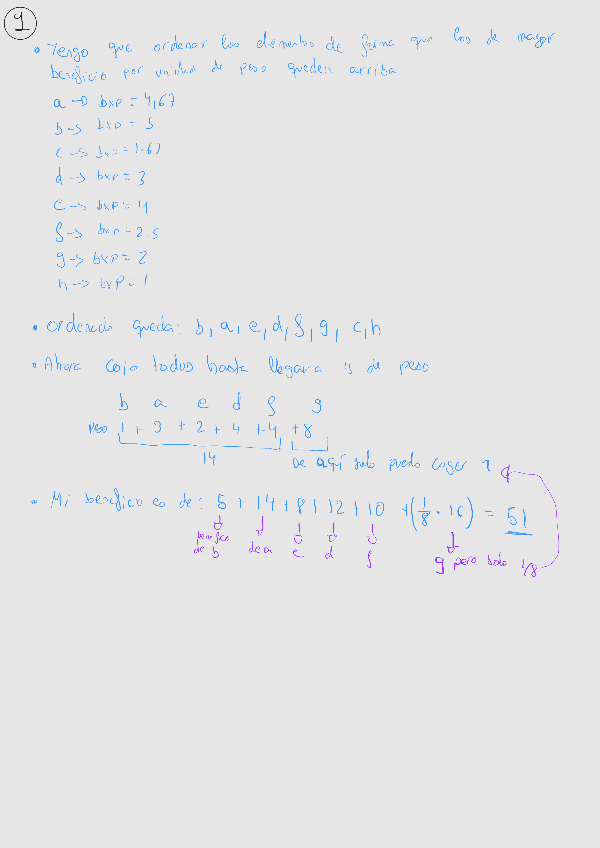 1
• Tengo que ordenar los elementos de forma que los de mayor
beneficio por unidad de peso queden arriba
a → bxp = 4,67
b → bxp = 5
c → bxp = 1.67
d → bxp = 3
e → bxp = 4
f → bxp = 2.5
g → bxp = 2
h → bxp = 1
• Ordenado queda: b, a, e, d, f, g, c, h
• Ahora cojo todos hasta llegar a 15 de peso
b a e d f g
peso 1 + 3 + 2 + 4 + 4 + 8
14 De aquí solo puedo coger 1
• Mi beneficio es de: 5 + 14 + 8 + 12 + 10 + (1/8 · 16) = 51
beneficio de b de a e d f g pero solo 1/8